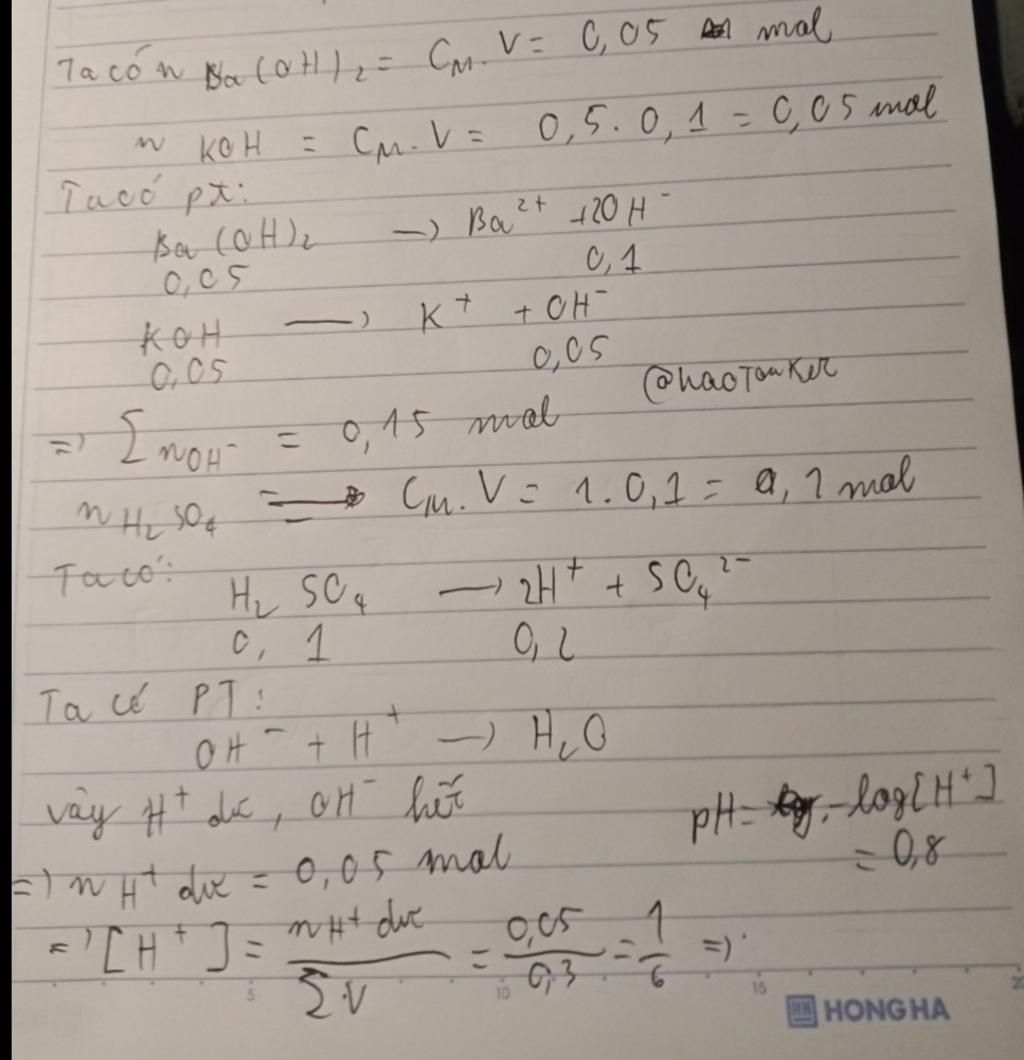 Ta có n Ba(OH)₂ = C_M. V = 0,05 mol
n KOH = C_M. V = 0,5. 0,1 = 0,05 mol
Ta có pt:
Ba(OH)₂ → Ba²⁺ + 2OH⁻
0,05 0,1
KOH → K⁺ + OH⁻
0,05 0,05
@haoTomker
=> ∑ n_OH⁻ = 0,15 mol
n H₂SO₄ = C_M. V = 1. 0,1 = 0,1 mol
Ta có:
H₂SO₄ → 2H⁺ + SO₄²⁻
0,1 0,2
Ta có PT:
OH⁻ + H⁺ → H₂O
vậy H⁺ dư, OH⁻ hết
=> n H⁺ dư = 0,05 mol
=> [H⁺] = n H⁺ dư / ∑V = 0,05/0,3 = 1/6 =>
pH = -log[H⁺]
= 0,8
5 10 15 20
HH HONG HA